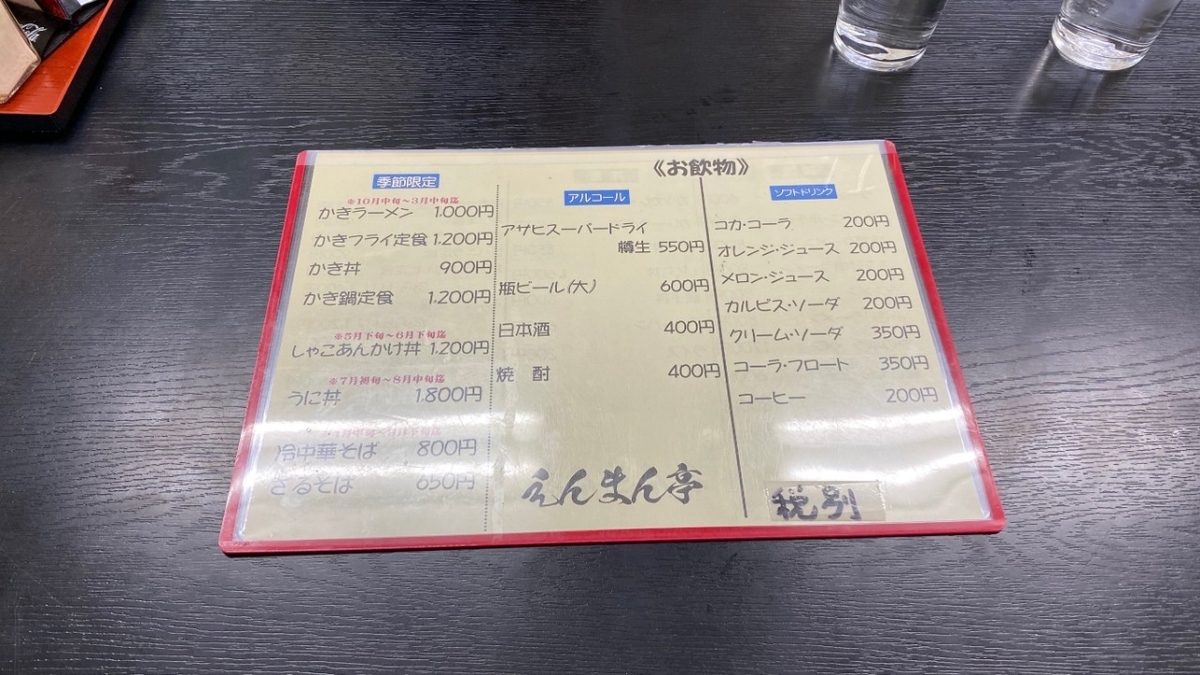 季節限定
※10月中旬～3月中旬迄
かきラーメン 1.000円
かきフライ定食 1.200円
かき丼 900円
かき鍋定食 1.200円
※5月下旬～6月下旬迄
しゃこあんかけ丼 1.200円
※7月初旬～8月中旬迄
うに丼 1.800円
冷中華そば 800円
ざるそば 650円
《お飲物》
アルコール
アサヒスーパードライ
樽生 550円
瓶ビール(大) 600円
日本酒 400円
焼 酎 400円
えんまん亭
ソフトドリンク
コカ・コーラ 200円
オレンジ・ジュース 200円
メロン・ジュース 200円
カルピス・ソーダ 200円
クリーム・ソーダ 350円
コーラ・フロート 350円
コーヒー 200円
税別